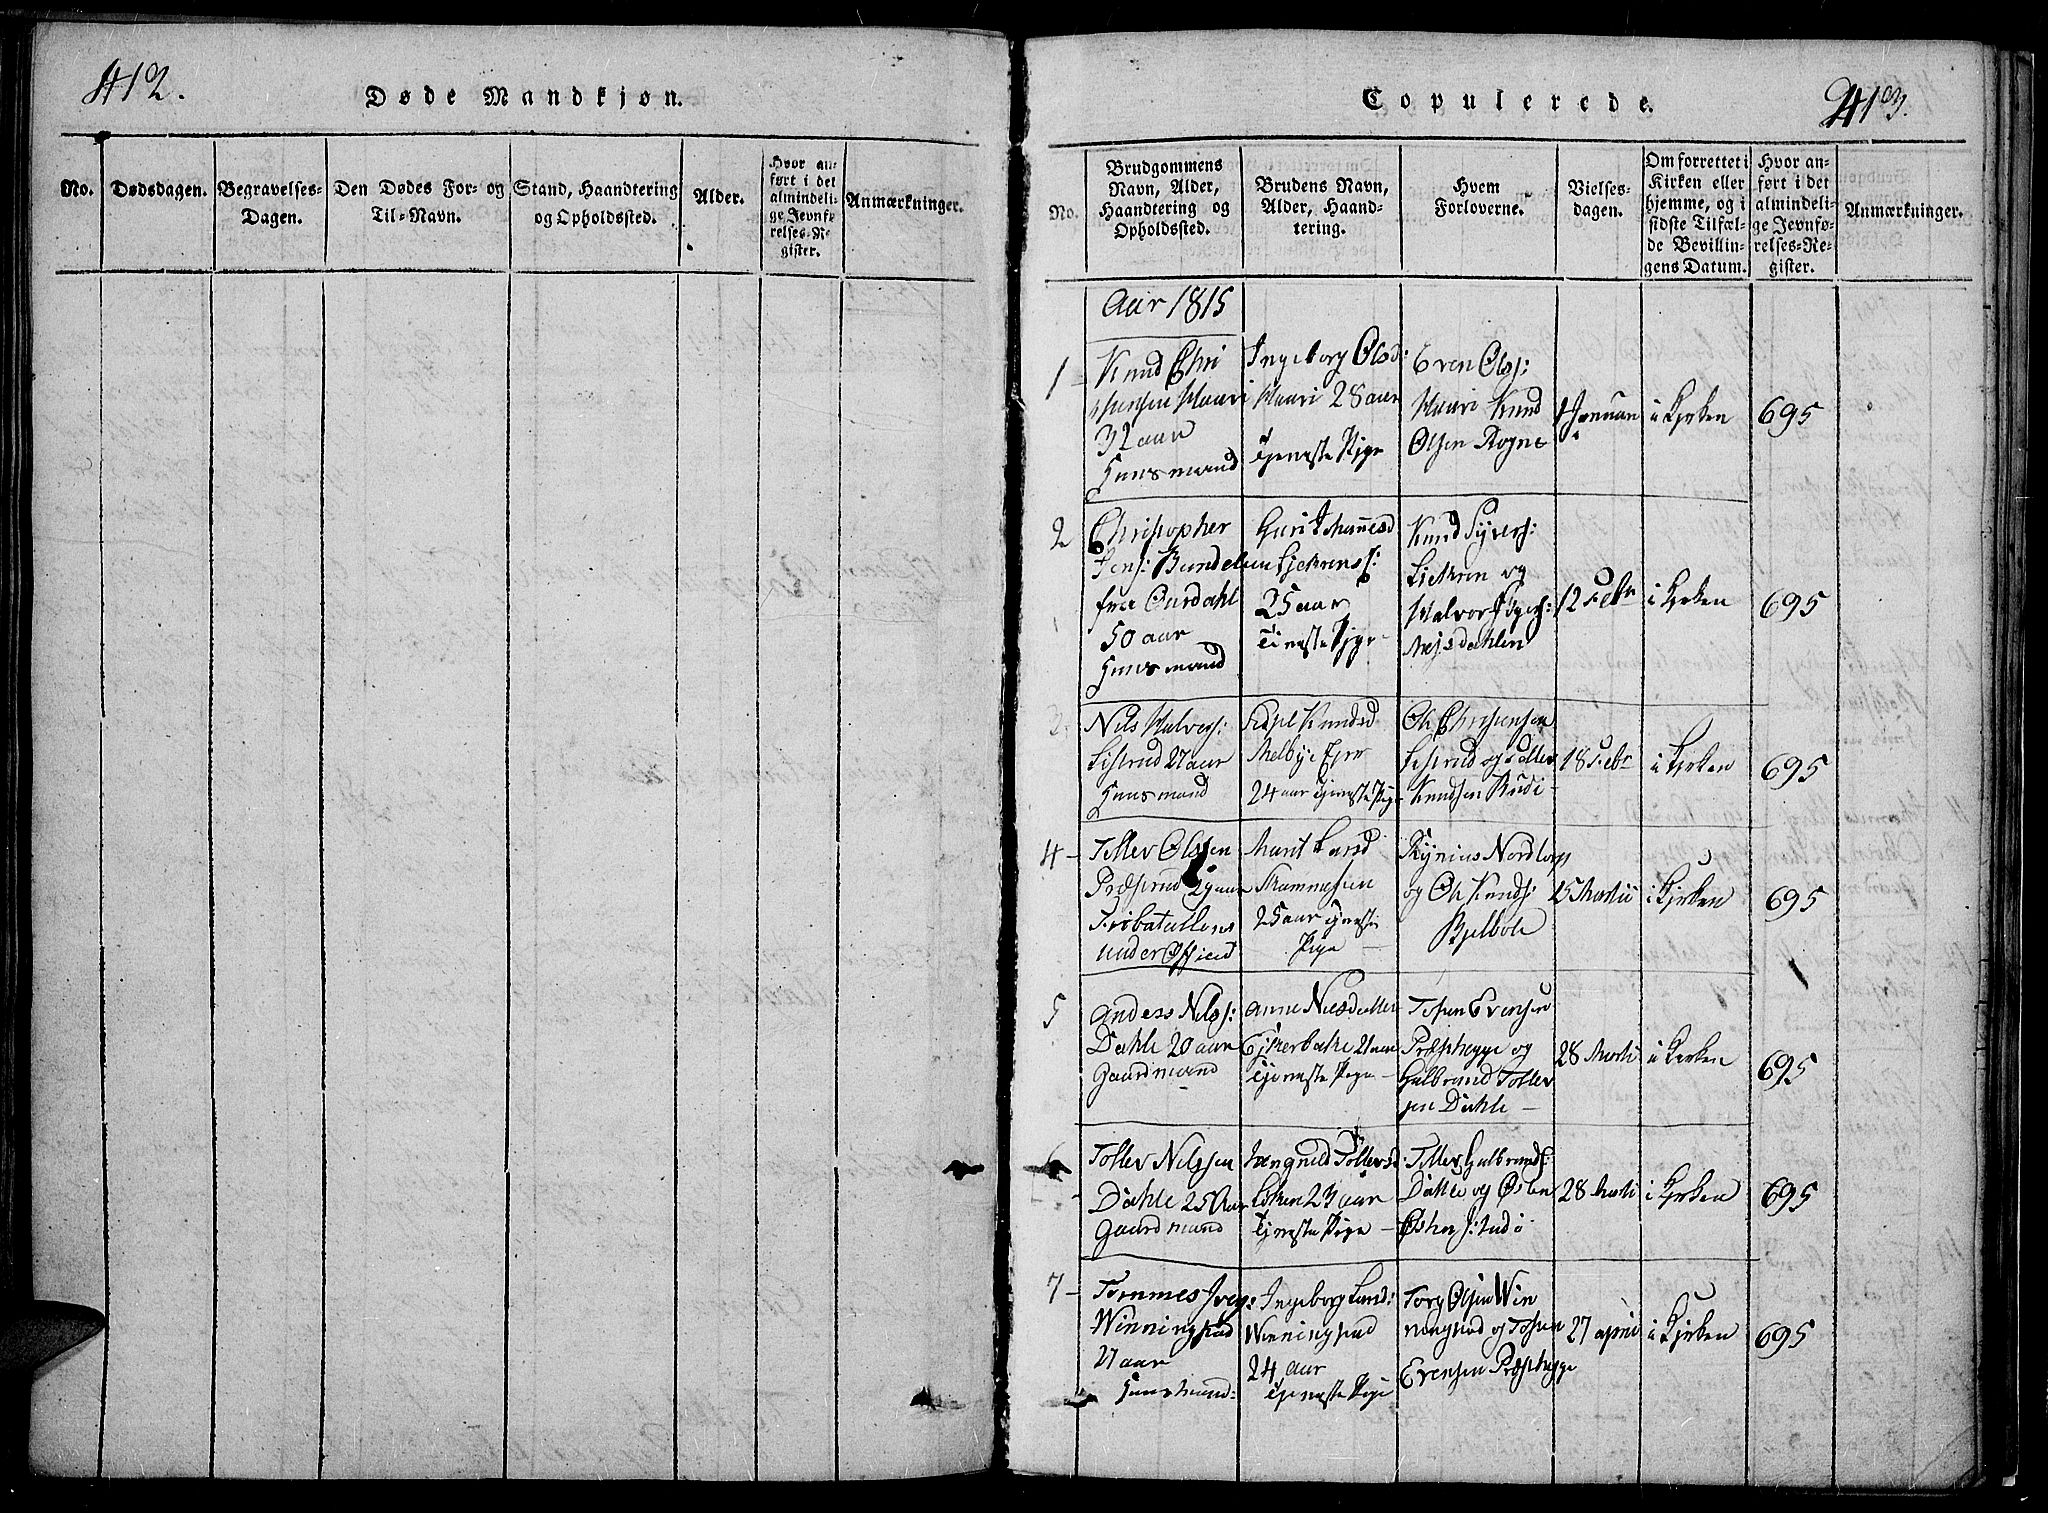 412.
Døde Mandkjøn.
No.
Dødsdagen.
Begravelses-
Dagen.
Den Dødes For- og
Til-Navn.
Stand, Haandtering
og Opholdssted.
Alder.
Hvor an-
ført i det
almindeli-
ge Jevnfø
relses-Re-
gister.
Anmærkninger.
Copulerede.
413.
No.
Brudgommens
Navn, Alder,
Haandtering og
Opholdssted.
Brudens Navn,
Alder, Haand-
tering.
Hvem
Forloverne.
Vielses-
dagen.
Om forrettet i
Kirken eller
hjemme, og i
sidste Tilfæl-
de Bevillin-
gens Datum.
Hvor an-
ført i det
almindeli-
ge Jevnfø-
relses-Re-
gister.
Anmærkninger.
Aar 1815
1
Knud Chri
32 aar
Huusmand
Ingeborg Olsd:
28 aar
Tjeneste Pige
Even Olss:
Knud
Olsen Rogne
1 Januari
i Kirken
695
2
Christopher
Jens:
fra Ourdahl
50 aar
Huusmand
Guri
25 aar
Tieneste Pige
Knud Syvers:
og
Halvor
12 Febr
i Kirken
695
3
Nils Halvors:
27 aar
Huusmand
Knudsd
Melbye
24 aar Tjeneste Pige
Ole Christensen
og Toller
Knudsen Rudi
18 Febr
i Kirken
695
4
Toller Olssen
Præstrud 29 aar
under Officier
Marit Larsd
25 aar Tjeneste
Pige
Nordtorp
og Ole Knuds:
Bjelbole
25 Martii
i Kirken
695
5
Anders Nilss:
Dahle 20 aar
Gaardmand
Anne Nilsdatter
21 aar
Tjeneste Pige
Tosten Evensen
Præsthegge og
Gulbrand Toller
sen Dahle
28 Marti
i Kirken
695
6
Toller Nilssen
Dahle 25 Aar
Gaardmand
Tollersd:
23 aar
Tjeneste Pige
Toller Gulbrands:
Dahle og
28 Marti
i Kirken
695
7
Tommes Ivers:
Winningstad
27 aar
Huusmand
Ingeborg
Winningstad
24 aar
Tjeneste Pige
Olsen Win
ningstad og Tosten
Evensen Præsthegge
27 april
i Kirken
695